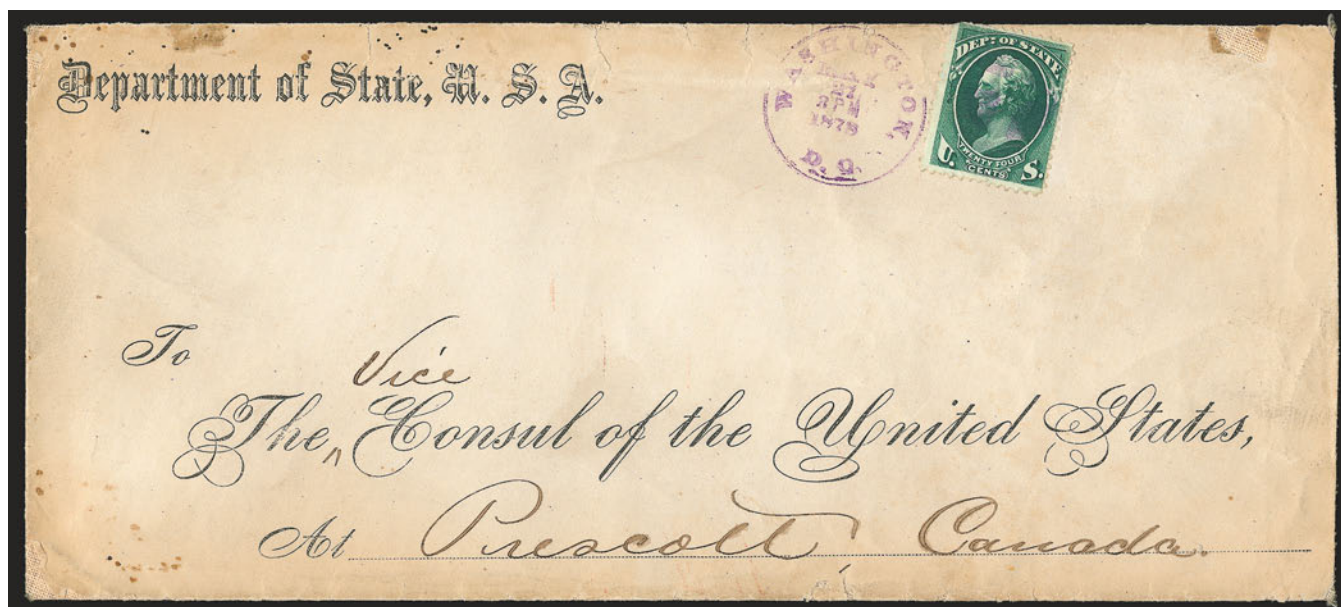 Department of State, U. S. A.
WASHINGTON,
2PM
1878
D.C.
DEPT: OF STATE
TWENTY FOUR
CENTS
U. S.
To
Vice
The ^ Consul of the United States,
At Prescott, Canada.